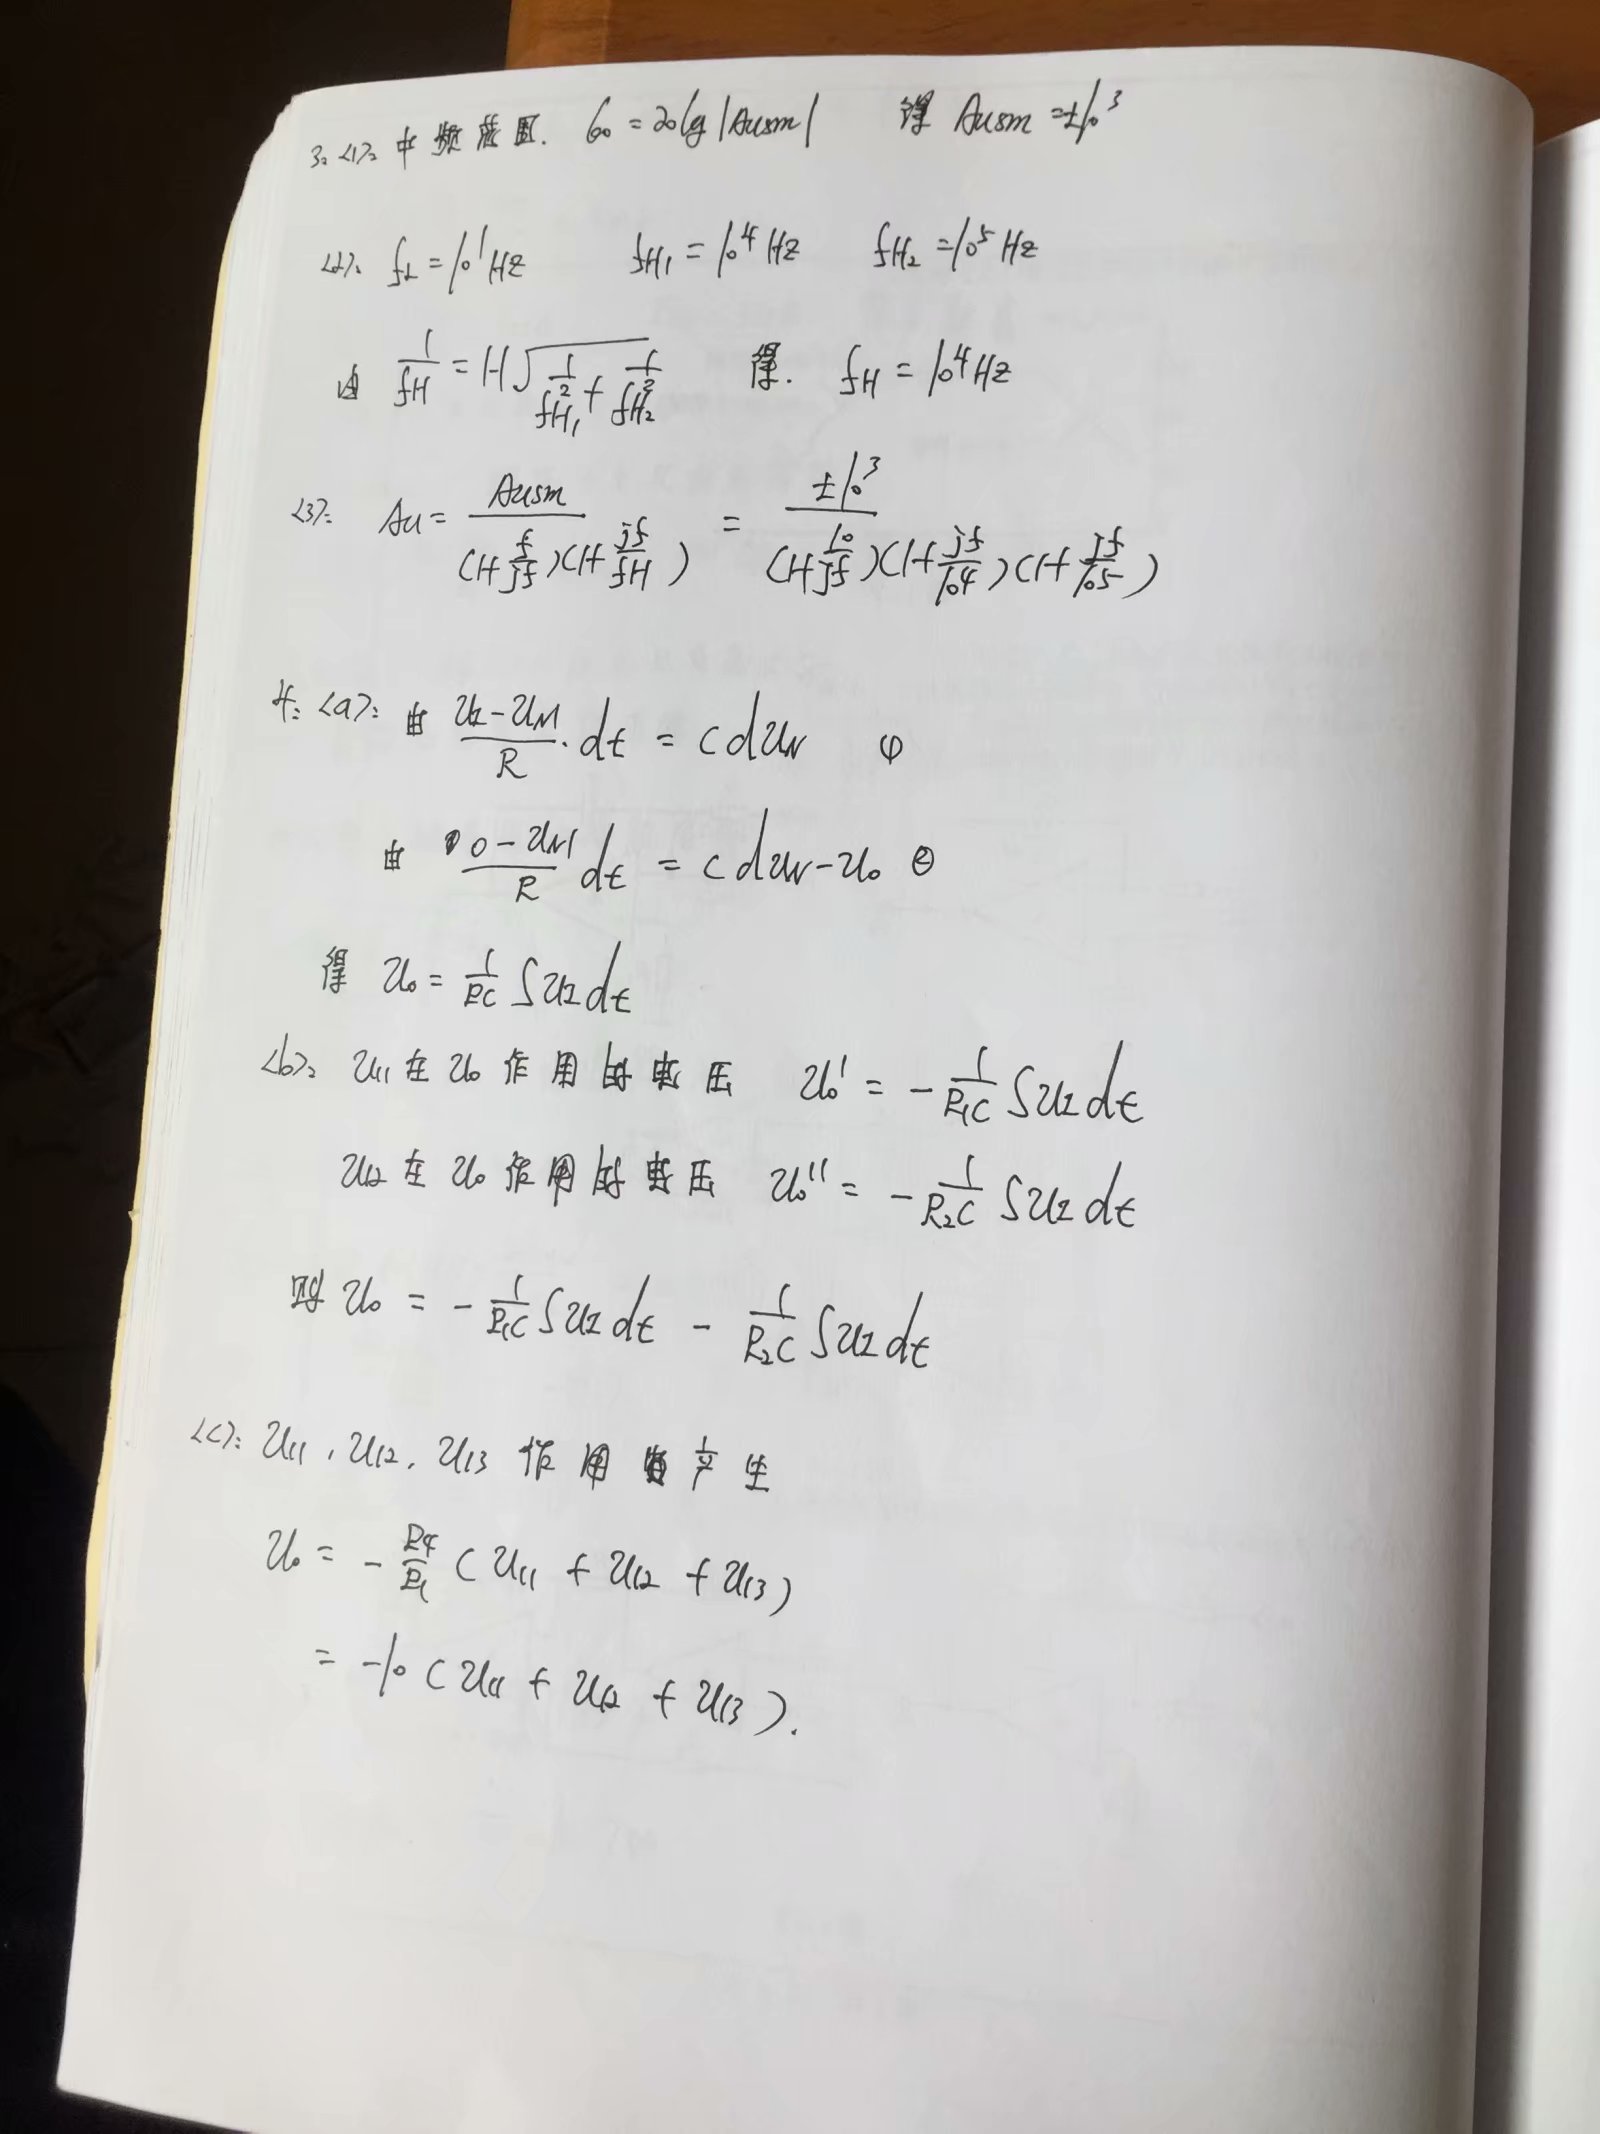 3.<1>. 中频范围. 60 = 20lg|Ausm| 得 Ausm = ±10³
<2>. fL = 10¹Hz fH₁ = 10⁴Hz fH₂ = 10⁵Hz
由 1/fH = 1.1√(1/fH₁² + 1/fH₂²) 得. fH = 10⁴Hz
<3>. Au = Ausm/((1+f/jf)(1+jf/fH)) = ±10³/((1+10/jf)(1+jf/10⁴)(1+jf/10⁵))
4. <a>: 由 (uI-uM)/R · dt = C duN ①
由 (0-uM)/R dt = C duN-uo ②
得 uo = 1/RC ∫uI dt
<b>. uI1在uo作用的电压 uo' = -1/R₁C ∫uI dt
uI2在uo作用的电压 uo'' = -1/R₂C ∫uI dt
则 uo = -1/R₁C ∫uI dt - 1/R₂C ∫uI dt
<c>: uI1, uI2, uI3 作用 产生
uo = -R4/R1 (uI1 + uI2 + uI3)
= -10 (uI1 + uI2 + uI3).